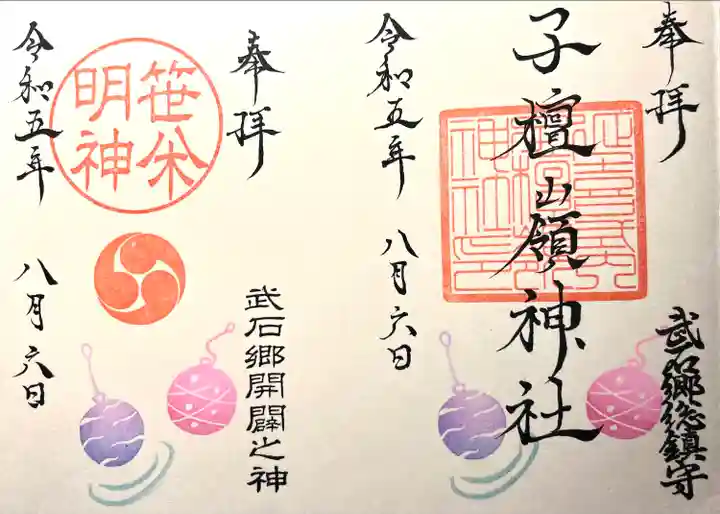 奉拝
武石郷総鎮守
子檀嶺神社
令和五年 八月六日
奉拝
武石郷開闢之神
笹
明神
令和五年 八月六日